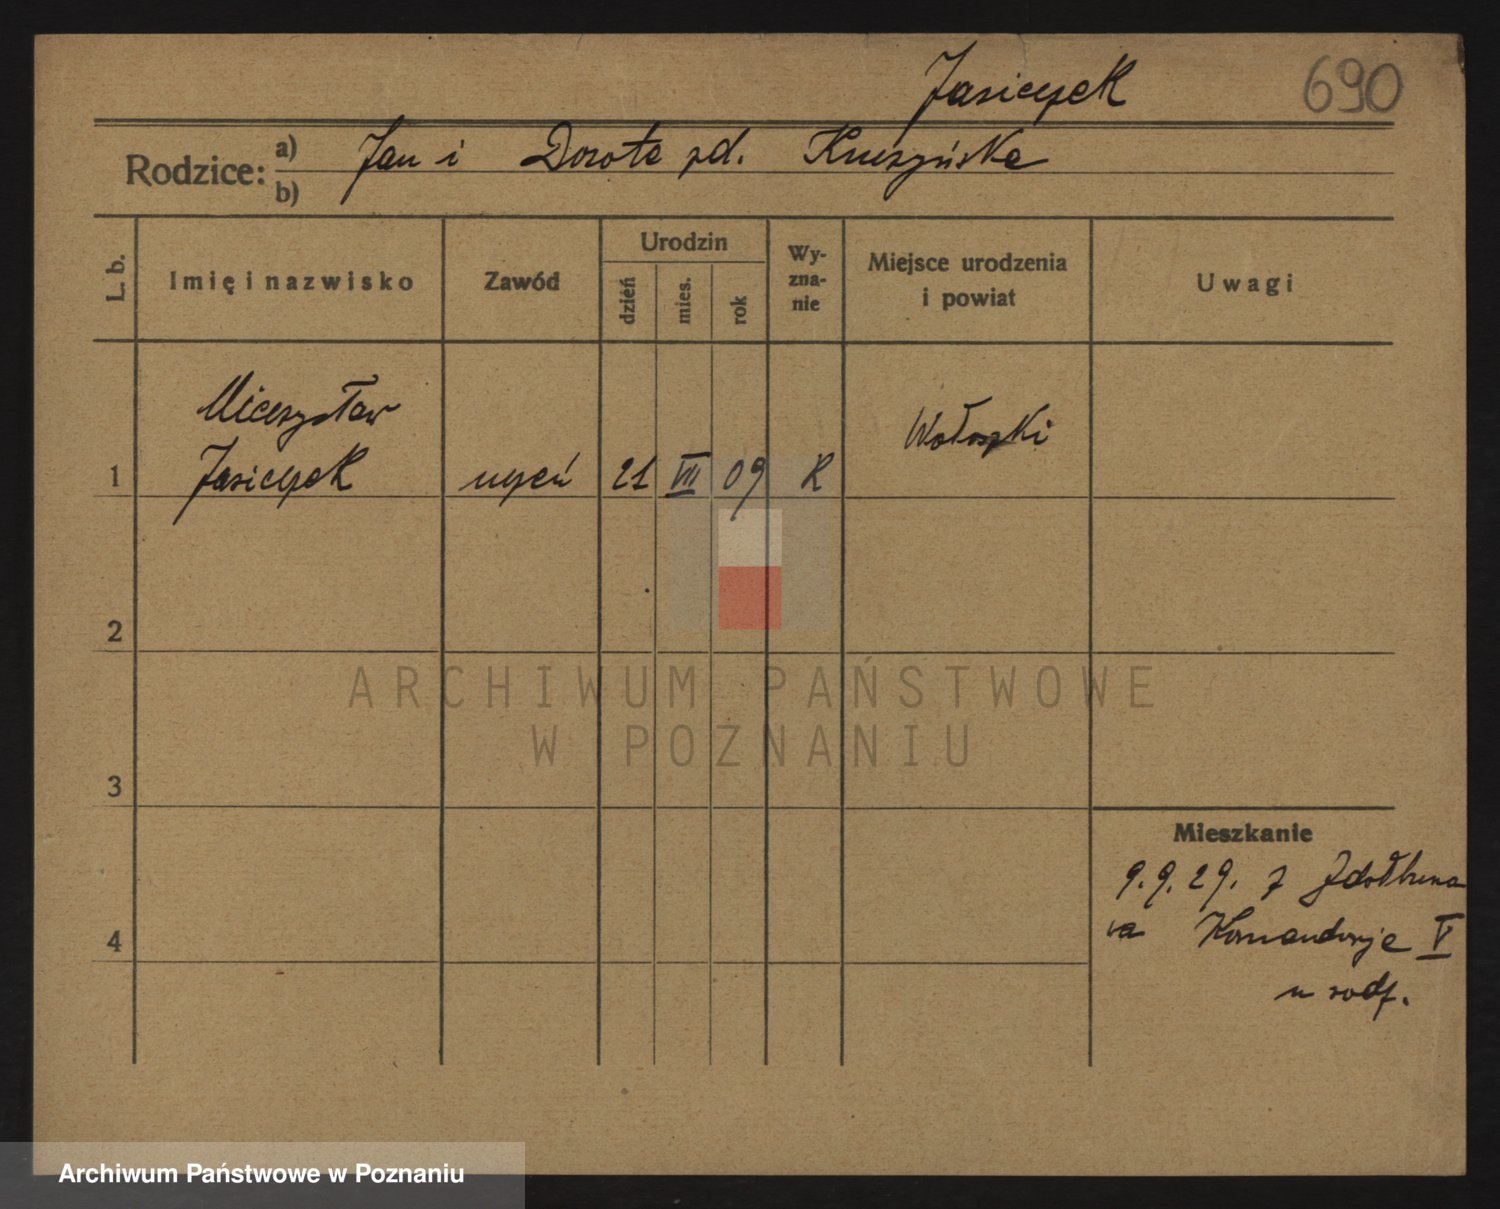 Jasiczek 690
Rodzice: a) Jan i Dorota zd. Kruszyńska
b)
L. b. Imię i nazwisko Zawód Urodzin dzień mies. rok Wy-zna-nie Miejsce urodzenia i powiat Uwagi
Mieczysław
1 Jasiczek uczeń 21 VIII 09 R Wołoszki
2
3
4
Mieszkanie
9.9.29. z Zdołbunowa
Komandorje V
u rodz.
ARCHIWUM PAŃSTWOWE
W POZNANIU
Archiwum Państwowe w Poznaniu